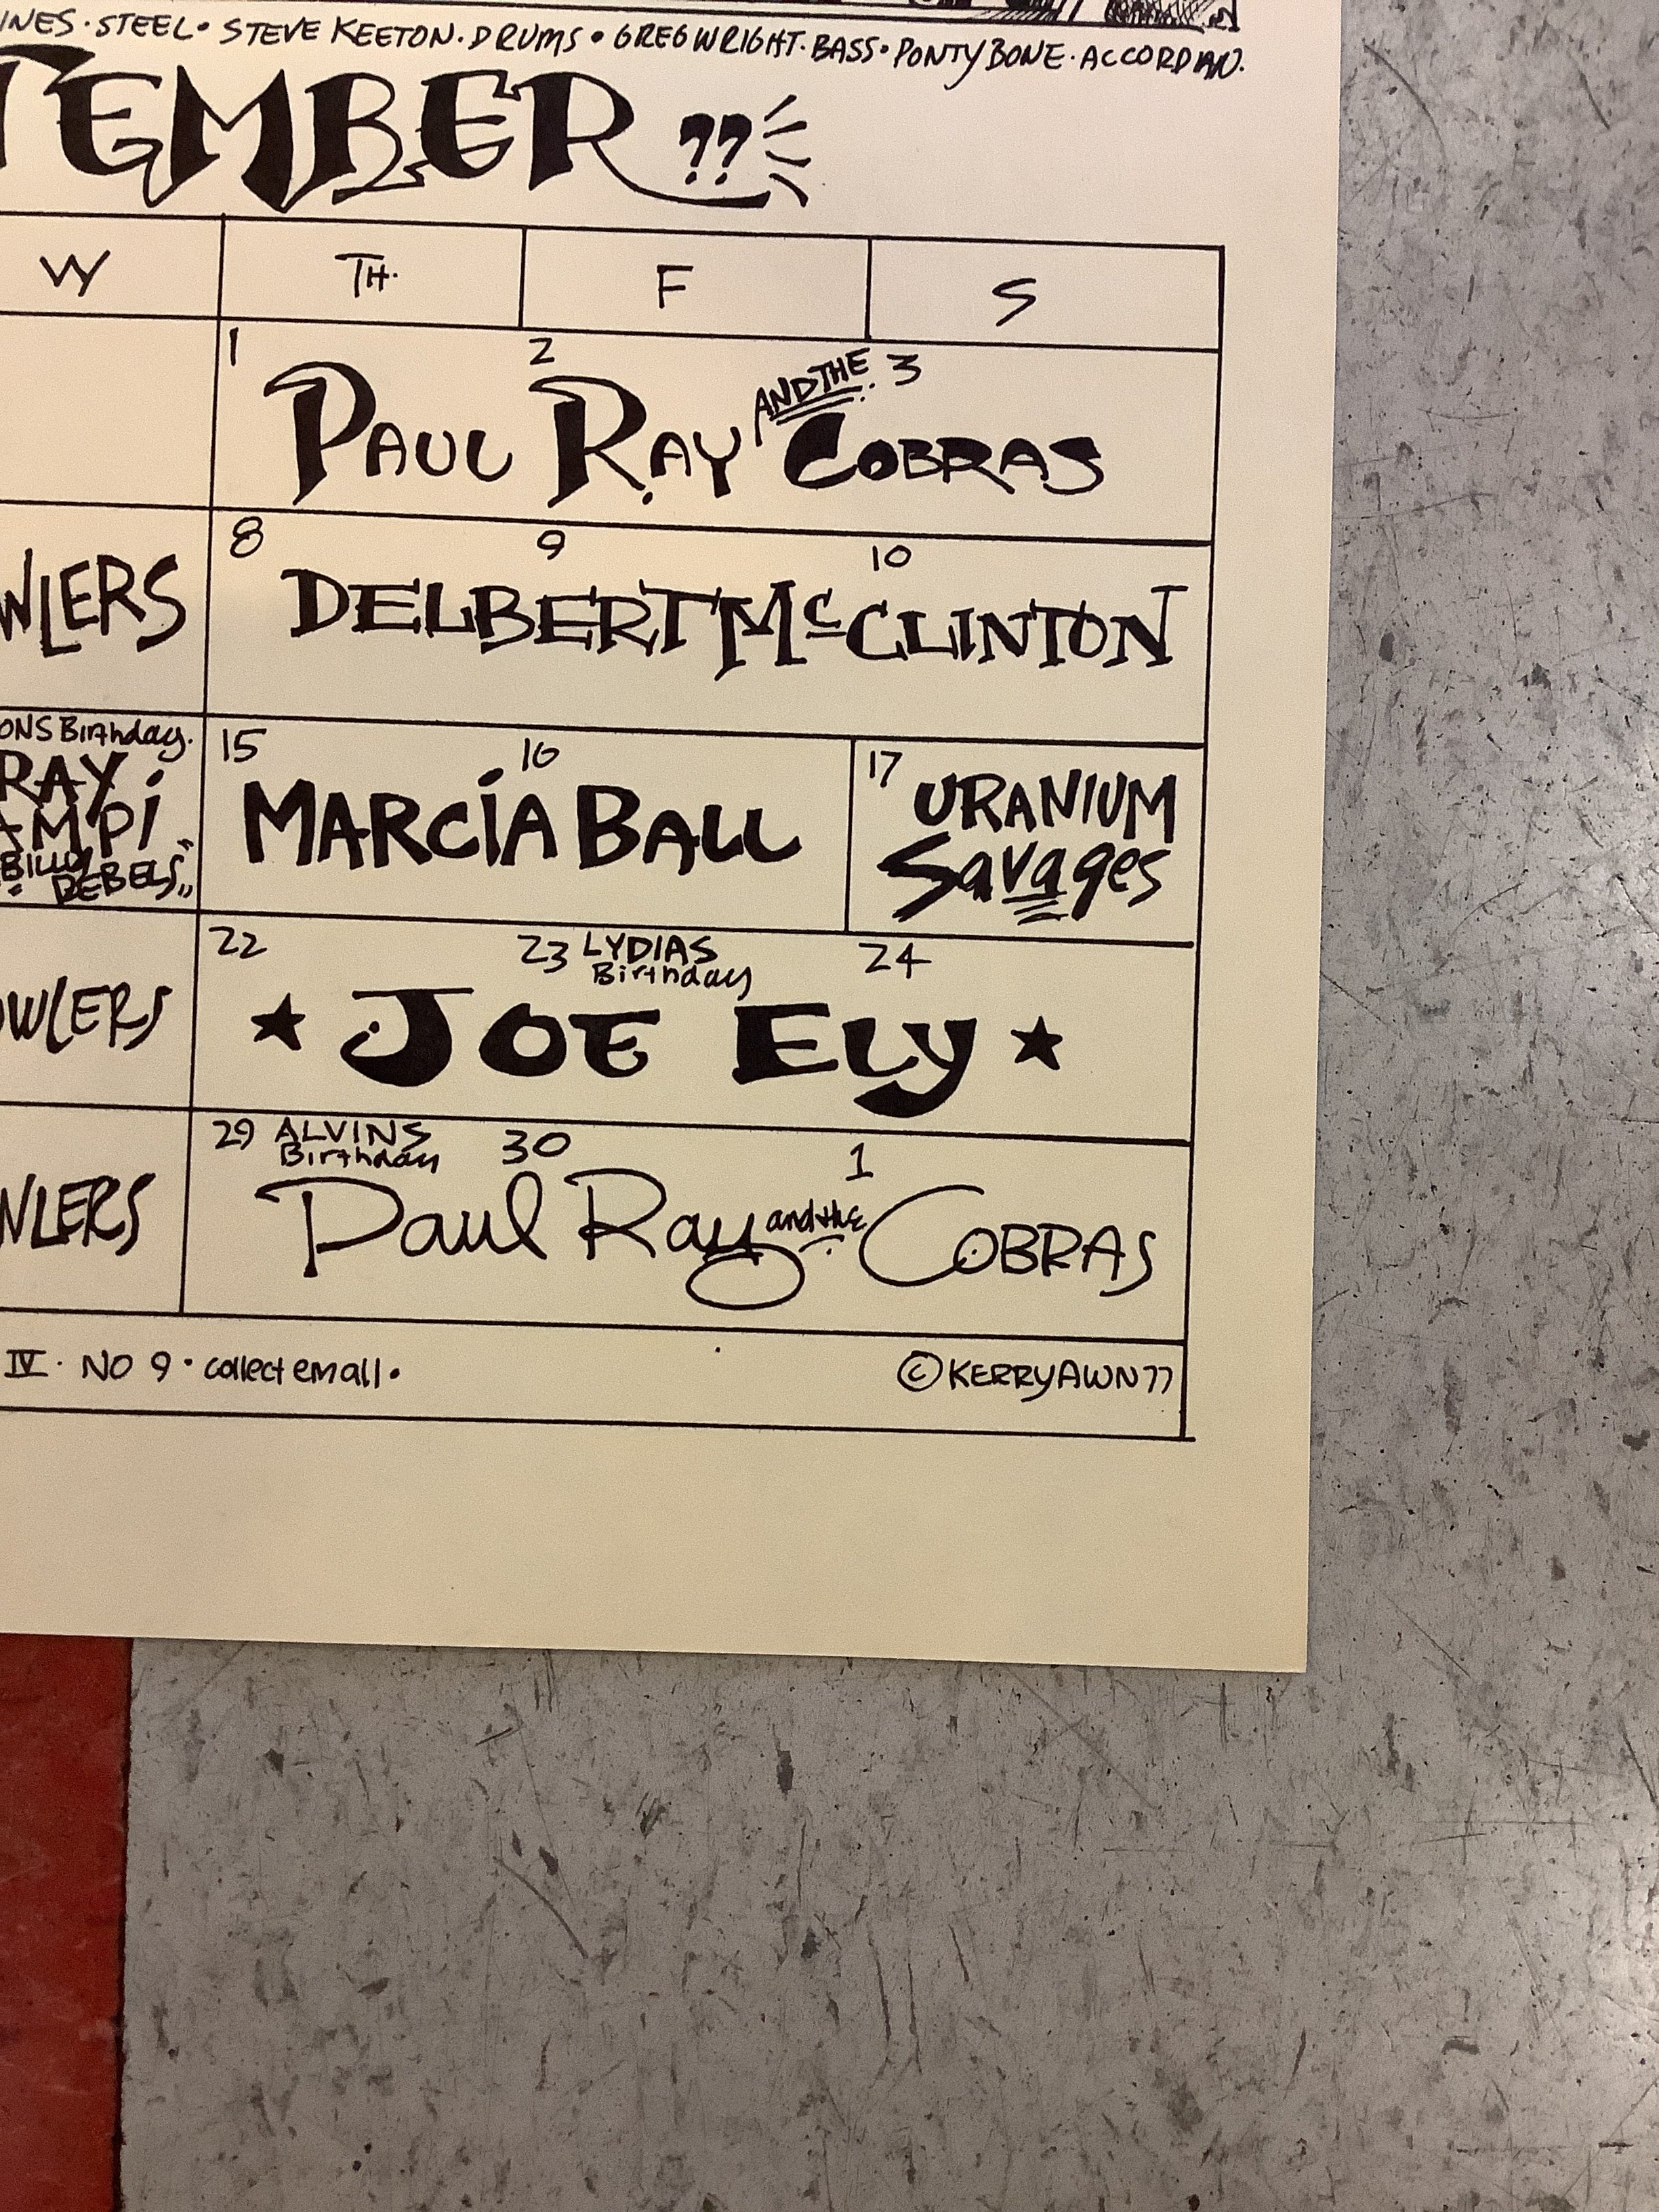 STEEL • STEVE KEETON • DRUMS • GREG WRIGHT • BASS • PONTY BONE • ACCORDIAN.
TEMBER ??
W TH. F S
1 2 3
PAUL RAY AND THE COBRAS
8 9 10
WLERS DELBERT McCLINTON
ONS Birthday.
RAY
AMPI
BILLY
REBELS"
15 16 17
MARCIA BALL
URANIUM
Savages
22 23 LYDIAS 24
Birthday
OWLERS ★ JOE ELY ★
29 ALVINS 30 1
Birthday
WLERS Paul Ray and the COBRAS
IV • NO 9 • collect em all •
© KERRY AWN 77